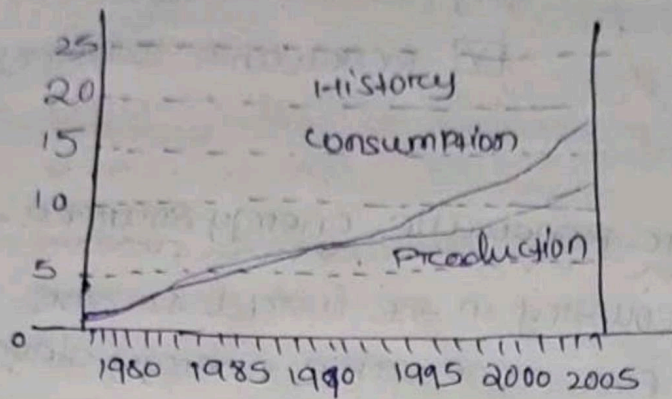 25
20
History
15
Consumption
10
5
Production
0
1980 1985 1990 1995 2000 2005